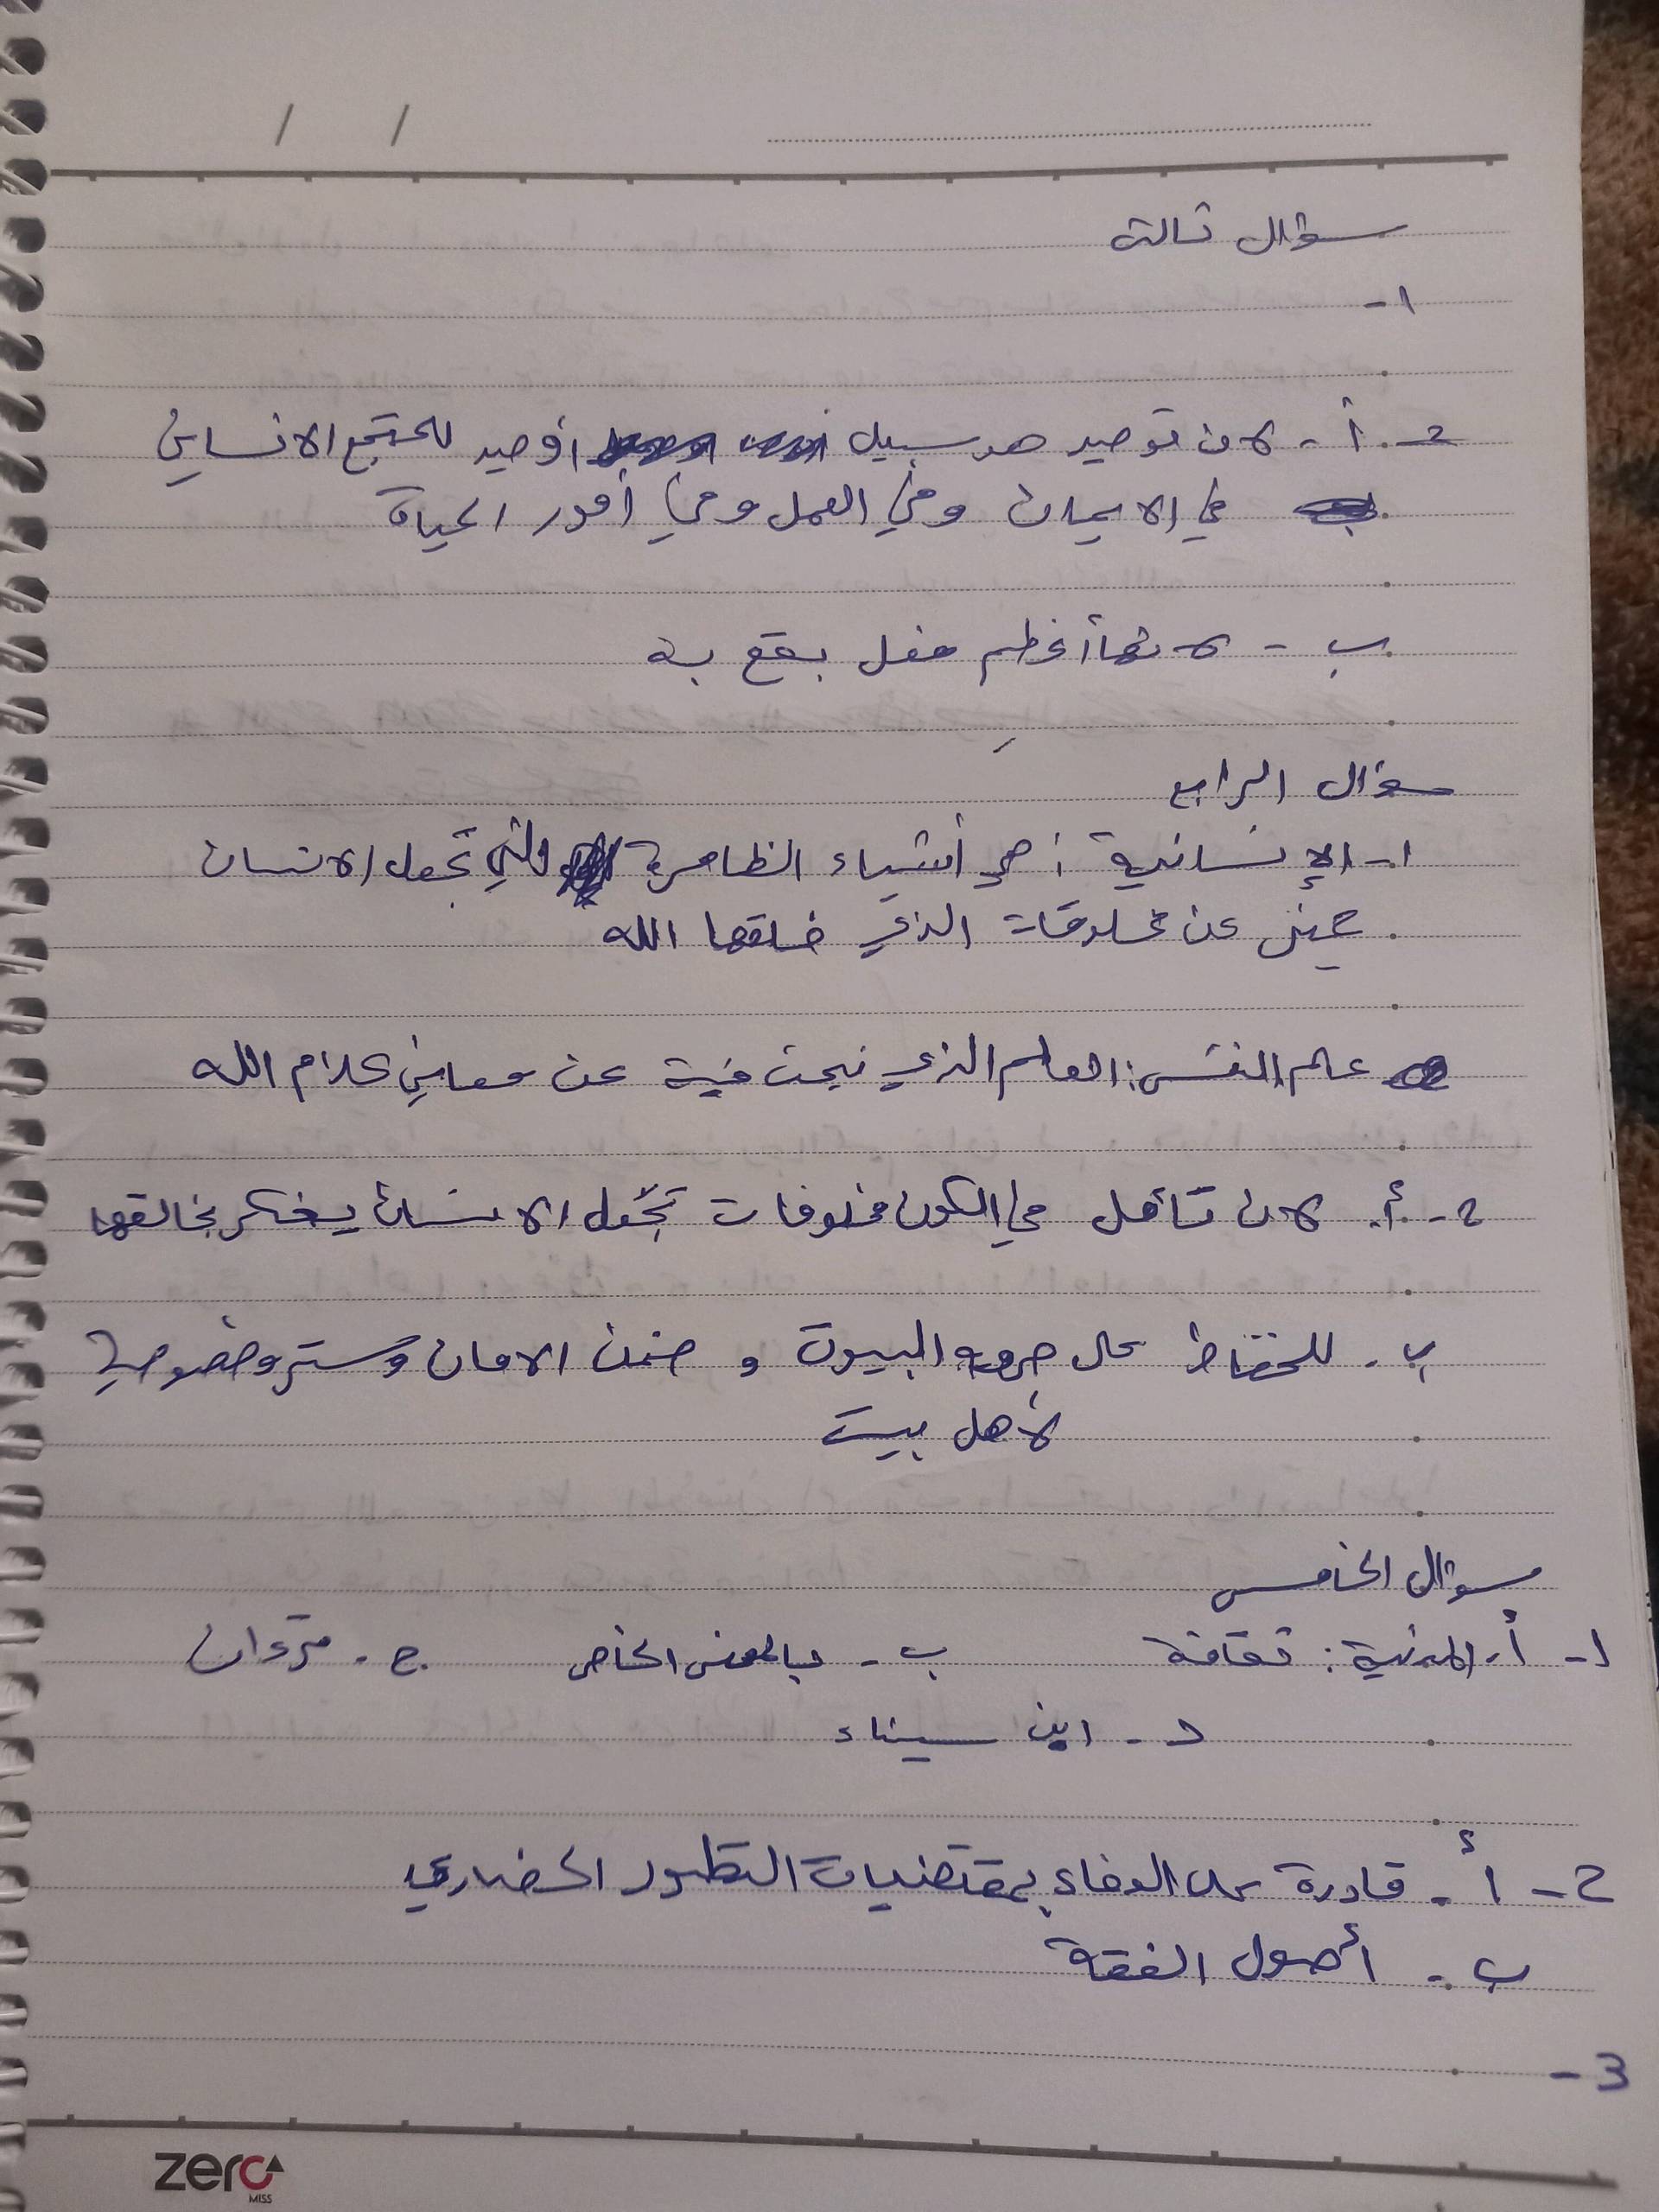 / /
سؤال ثالث
١-
2- أ- لان توحيد هو سبيل أوحيد للمجتمع الانساني
في الايمان وفي العمل وفي أمور الحياة
ب - لانها أعظم فعل
سؤال الرابع
١- الإنسانية : هي أشياء الظاهرة والتي تجعل الانسان
عن مخلوقات الذي خلقها الله
علم النفس : العلم الذي نبحث فية عن معاني كلام الله
2- أ. لان تأمل في الكون مخلوقات تجعل الانسان يفكر بخالقها
ب. للحفاظ على حرمه البيوت و ضمن الامان وستر وخصوصية
لأهل بيت
سؤال الخامس
١- أ. المدنية : ثقافة ب- بالمعنى الخاص ج.
د- ابن سيناء
2- أ. قادرة على الوفاء بمقتضيات التطور الحضاري
ب. أصول الفقة
3-
zero
MISS